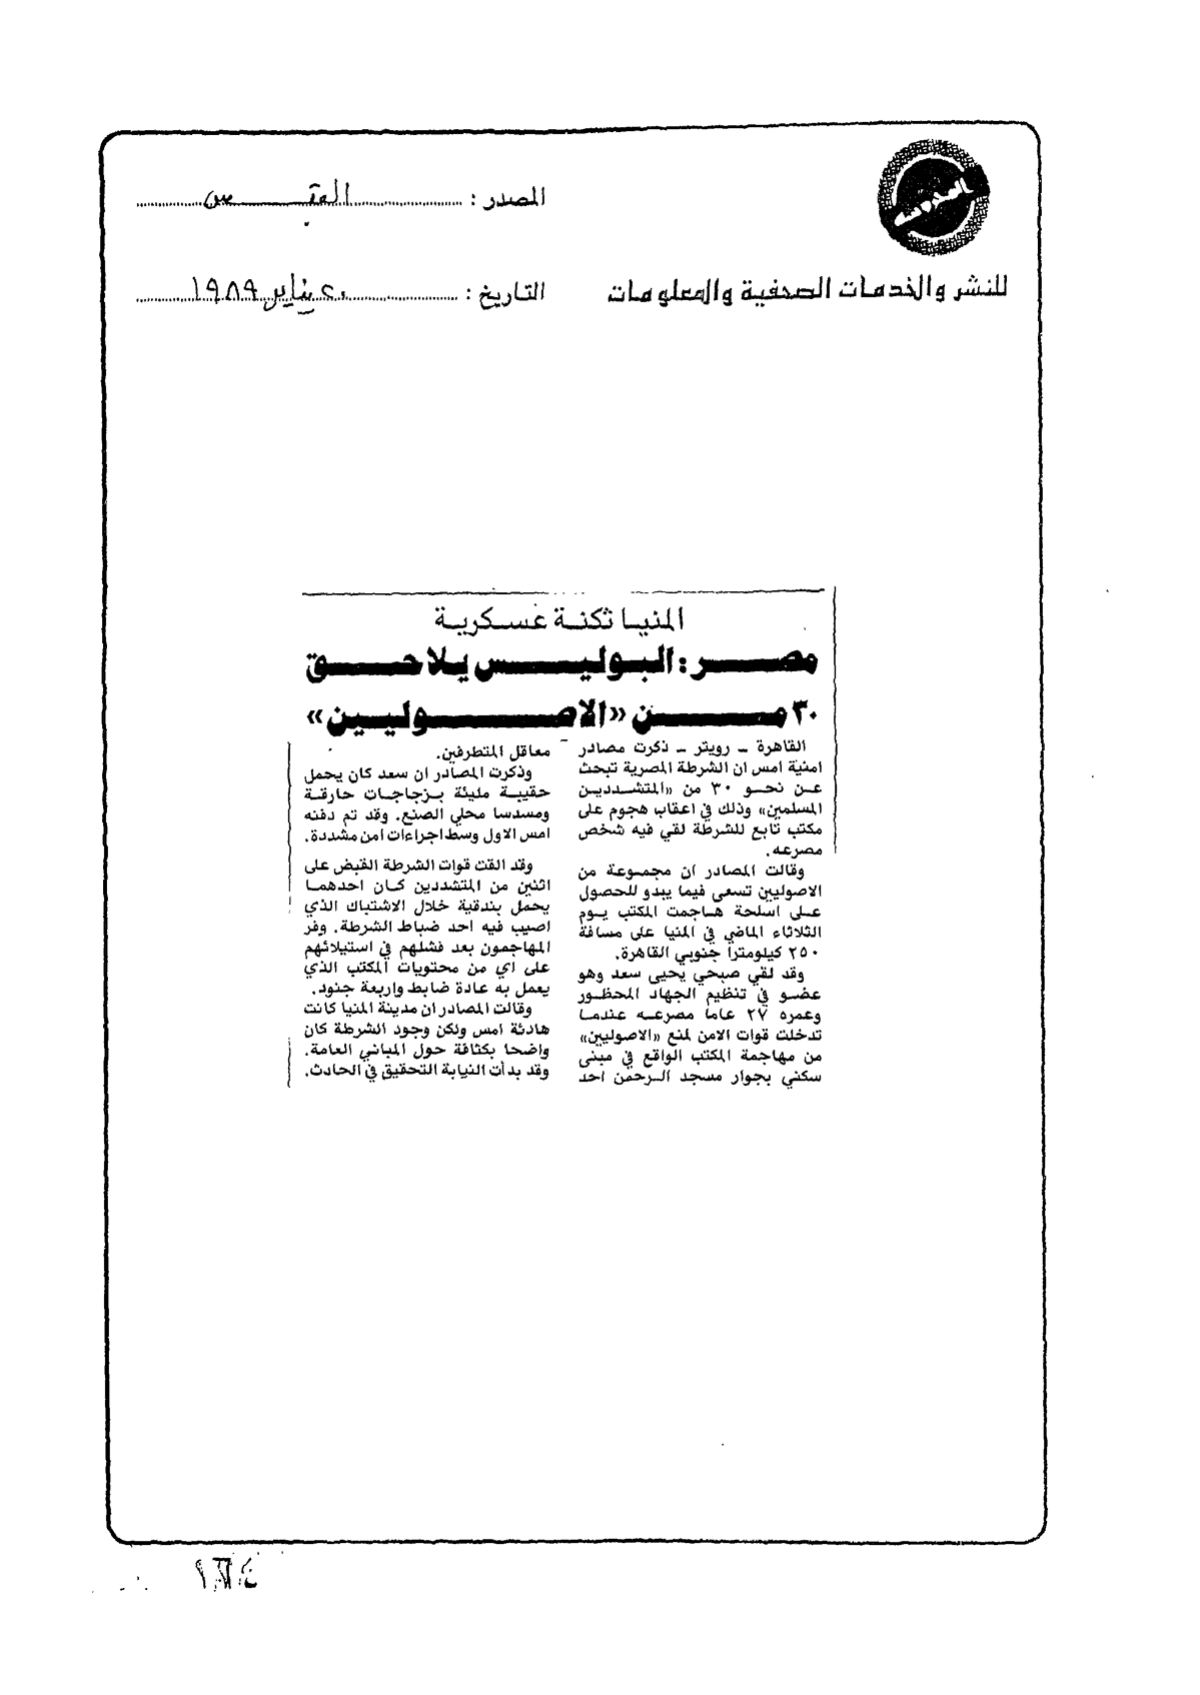 المصدر : القبس
التاريخ : ٢٠ يناير ١٩٨٩
للنشر والخدمات الصحفية والمعلومات
المنيا ثكنة عسكرية
مصر : البوليس يلاحق
٣٠ من «الاصوليين»
القاهرة ـ رويتر ـ ذكرت مصادر
امنية امس ان الشرطة المصرية تبحث
عن نحو ٣٠ من «المتشددين
المسلمين» وذلك في اعقاب هجوم على
مكتب تابع للشرطة لقي فيه شخص
مصرعه.
وقالت المصادر ان مجموعة من
الاصوليين تسعى فيما يبدو للحصول
على اسلحة هاجمت المكتب يوم
الثلاثاء الماضي في المنيا على مسافة
٢٥٠ كيلومترا جنوبي القاهرة.
وقد لقي صبحي يحيى سعد وهو
عضو في تنظيم الجهاد المحظور
وعمره ٢٧ عاما مصرعه عندما
تدخلت قوات الامن لمنع «الاصوليين»
من مهاجمة المكتب الواقع في مبنى
سكني بجوار مسجد الرحمن احد
معاقل المتطرفين.
وذكرت المصادر ان سعد كان يحمل
حقيبة مليئة بزجاجات حارقة
ومسدسا محلي الصنع. وقد تم دفنه
امس الاول وسط اجراءات امن مشددة.
وقد القت قوات الشرطة القبض على
اثنين من المتشددين كان احدهما
يحمل بندقية خلال الاشتباك الذي
اصيب فيه احد ضباط الشرطة. وفر
المهاجمون بعد فشلهم في استيلائهم
على اي من محتويات المكتب الذي
يعمل به عادة ضابط واربعة جنود.
وقالت المصادر ان مدينة المنيا كانت
هادئة امس ولكن وجود الشرطة كان
واضحا بكثافة حول المباني العامة.
وقد بدأت النيابة التحقيق في الحادث.